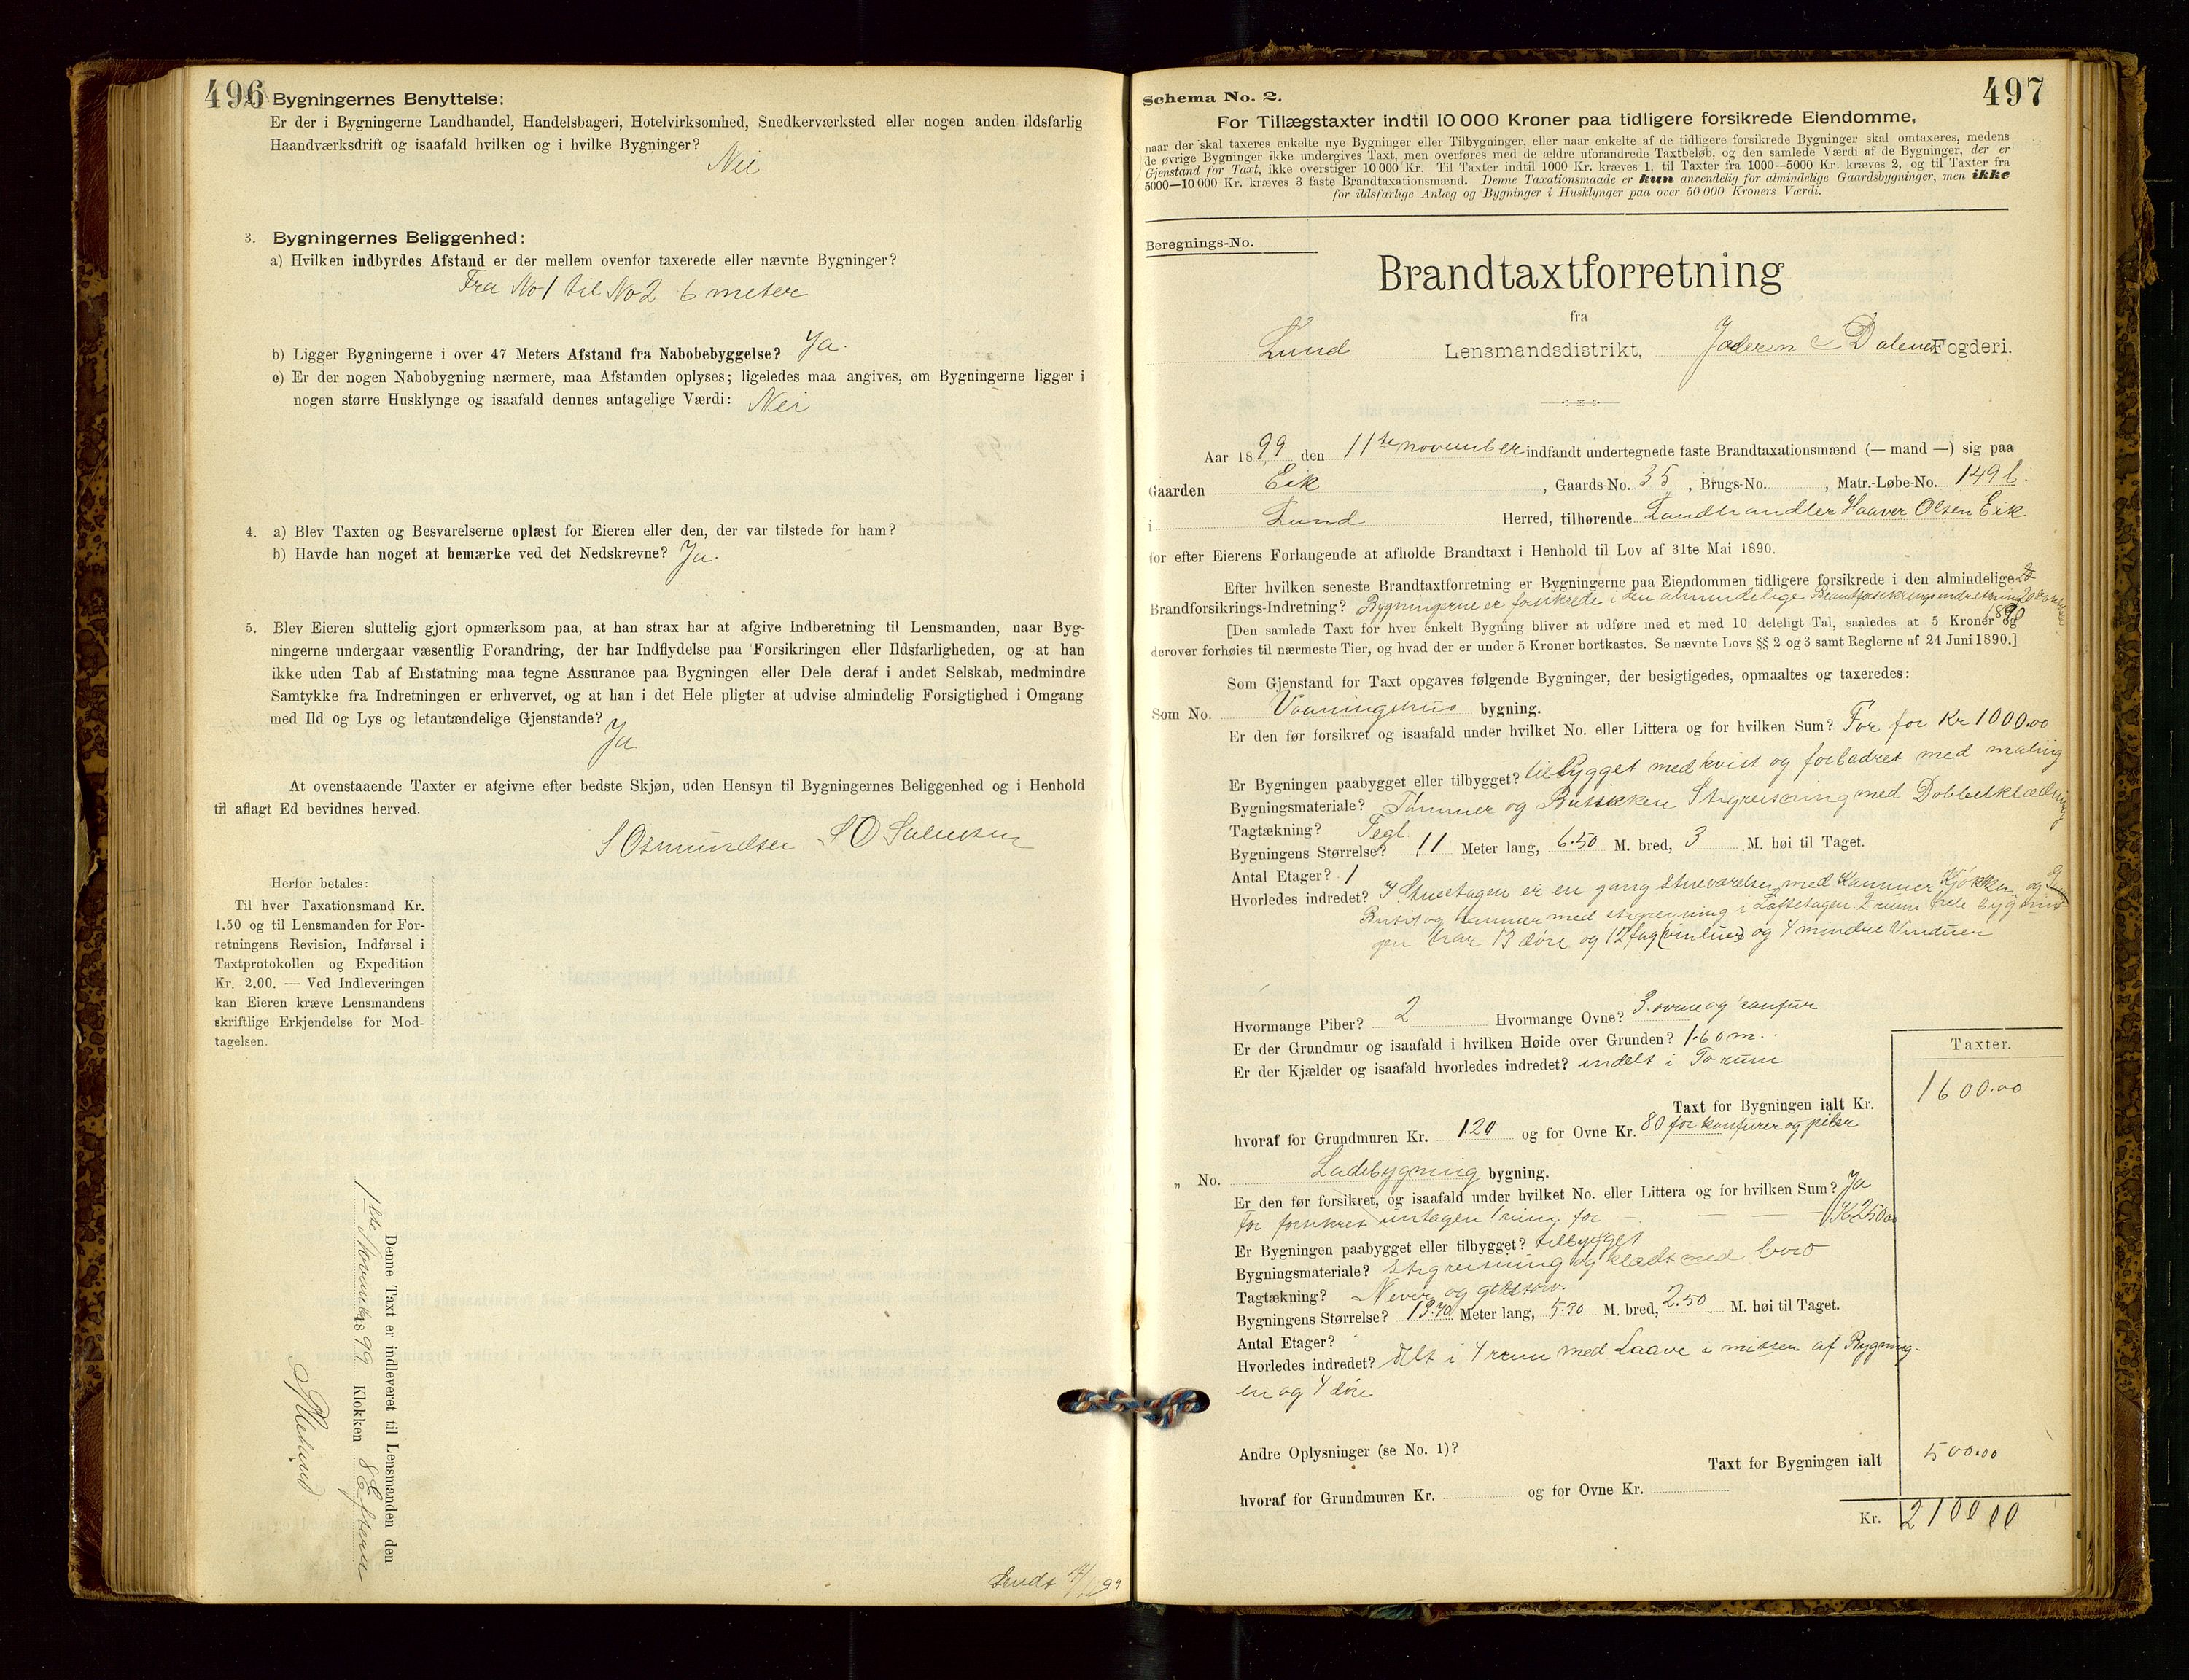 496
Bygningernes Benyttelse:
Er der i Bygningerne Landhandel, Handelsbageri, Hotelvirksomhed, Snedkerværksted eller nogen anden ildsfarlig
Haandværksdrift og isaafald hvilken og i hvilke Bygninger?
Nei
3. Bygningernes Beliggenhed:
a) Hvilken indbyrdes Afstand er der mellem ovenfor taxerede eller nævnte Bygninger?
Fra No 1 til No 2 6 meter
b) Ligger Bygningerne i over 47 Meters Afstand fra Nabobebyggelse? Ja.
c) Er der nogen Nabobygning nærmere, maa Afstanden oplyses; ligeledes maa angives, om Bygningerne ligger i
nogen større Husklynge og isaafald dennes antagelige Værdi: Nei
4. a) Blev Taxten og Besvarelserne oplæst for Eieren eller den, der var tilstede for ham?
b) Havde han noget at bemærke ved det Nedskrevne? Ja.
5. Blev Eieren sluttelig gjort opmærksom paa, at han strax har at afgive Indberetning til Lensmanden, naar Byg-
ningerne undergaar væsentlig Forandring, der har Indflydelse paa Forsikringen eller Ildsfarligheden, og at han
ikke uden Tab af Erstatning maa tegne Assurance paa Bygningen eller Dele deraf i andet Selskab, medmindre
Samtykke fra Indretningen er erhvervet, og at han i det Hele pligter at udvise almindelig Forsigtighed i Omgang
med Ild og Lys og letantændelige Gjenstande?
Ja
At ovenstaaende Taxter er afgivne efter bedste Skjøn, uden Hensyn til Bygningernes Beliggenhed og i Henhold
til aflagt Ed bevidnes herved.
S Osmundsen
Herfor betales:
Til hver Taxationsmand Kr.
1.50 og til Lensmanden for For-
retningens Revision, Indførsel i
Taxtprotokollen og Expedition
Kr. 2.00. — Ved Indleveringen
kan Eieren kræve Lensmandens
skriftlige Erkjendelse for Mod-
tagelsen.
Denne Taxt er indleveret til Lensmanden den
11te November 1899 Klokken 8 Efterm
Sendt
497
Schema No. 2.
For Tillægstaxter indtil 10 000 Kroner paa tidligere forsikrede Eiendomme,
naar der skal taxeres enkelte nye Bygninger eller Tilbygninger, eller naar enkelte af de tidligere forsikrede Bygninger skal omtaxeres, medens
de øvrige Bygninger ikke undergives Taxt, men overføres med de ældre uforandrede Taxtbeløb, og den samlede Værdi af de Bygninger, der er
Gjenstand for Taxt, ikke overstiger 10 000 Kr. Til Taxter indtil 1000 Kr. kræves 1, til Taxter fra 1000—5000 Kr. kræves 2, og til Taxter fra
5000—10 000 Kr. kræves 3 faste Brandtaxationsmænd. Denne Taxationsmaade er kun anvendelig for almindelige Gaardsbygninger, men ikke
for ildsfarlige Anlæg og Bygninger i Husklynger paa over 50 000 Kroners Værdi.
Beregnings-No.
Brandtaxtforretning
fra
Lund Lensmandsdistrikt, Jæderen & Dalene Fogderi.
Aar 1899 den 11te november indfandt undertegnede faste Brandtaxationsmænd (— mand —) sig paa
Gaarden Eik, Gaards-No. 35, Brugs-No. , Matr.-Løbe-No. 149 b.
i Lund Herred, tilhørende Landhandler Haaver Olsen Eik
for efter Eierens Forlangende at afholde Brandtaxt i Henhold til Lov af 31te Mai 1890.
Efter hvilken seneste Brandtaxtforretning er Bygningerne paa Eiendommen tidligere forsikrede i den almindelige
Brandforsikrings-Indretning? Bygningerne er forsikrede i den almindelige Brandforsikrings indretning
[Den samlede Taxt for hver enkelt Bygning bliver at udføre med et med 10 deleligt Tal, saaledes at 5 Kroner og
derover forhøies til nærmeste Tier, og hvad der er under 5 Kroner bortkastes. Se nævnte Lovs §§ 2 og 3 samt Reglerne af 24 Juni 1890.]
Som Gjenstand for Taxt opgaves følgende Bygninger, der besigtigedes, opmaaltes og taxeredes:
Som No. Vaaningshus bygning.
Er den før forsikret og isaafald under hvilket No. eller Littera og for hvilken Sum? For for Kr 1000.00
Er Bygningen paabygget eller tilbygget? tilbygget med kvist og forbedret med maling
Bygningsmateriale? Tømmer og Stigreisning med Dobbelklædning
Tagtækning? Tegl.
Bygningens Størrelse? 11 Meter lang, 6.50 M. bred, 3 M. høi til Taget.
Antal Etager? 1
Hvorledes indredet? I Stuetagen er en gang Stueværelse med Kammer Kjøkken og
og kammer med stigreisning i Loftetagen 2 rum hele bygnin-
gen har 13 døre og 12 fag og 4 mindre Vinduer
Hvormange Piber? 2 Hvormange Ovne? 3. ovne og komfur
Er der Grundmur og isaafald i hvilken Høide over Grunden? 1.60 m.
Er der Kjælder og isaafald hvorledes indredet? indelt i To rum
Taxter.
Taxt for Bygningen ialt Kr. 1600.00
hvoraf for Grundmuren Kr. 120 og for Ovne Kr. 80 for komfurer og piber
„ No. Ladebygning bygning.
Er den før forsikret, og isaafald under hvilket No. eller Littera og for hvilken Sum? Ja
For forsikret untagen 1 rum for — — — Kr 250.00
Er Bygningen paabygget eller tilbygget? tilbygget
Bygningsmateriale? Stigreisning og klædt med bord
Tagtækning? Never og græstorv.
Bygningens Størrelse? 13.70 Meter lang, 5.30 M. bred, 2.50 M. høi til Taget.
Antal Etager? "
Hvorledes indredet? delt i 4 rum med Laave i mitten af Bygning-
en og 4 døre
Andre Oplysninger (se No. 1)?
Taxt for Bygningen ialt 500.00
hvoraf for Grundmuren Kr. og for Ovne Kr.
Kr. 2100 00